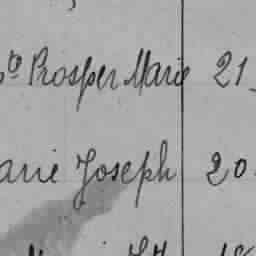 Prosper Marie 21
arie Joseph 20